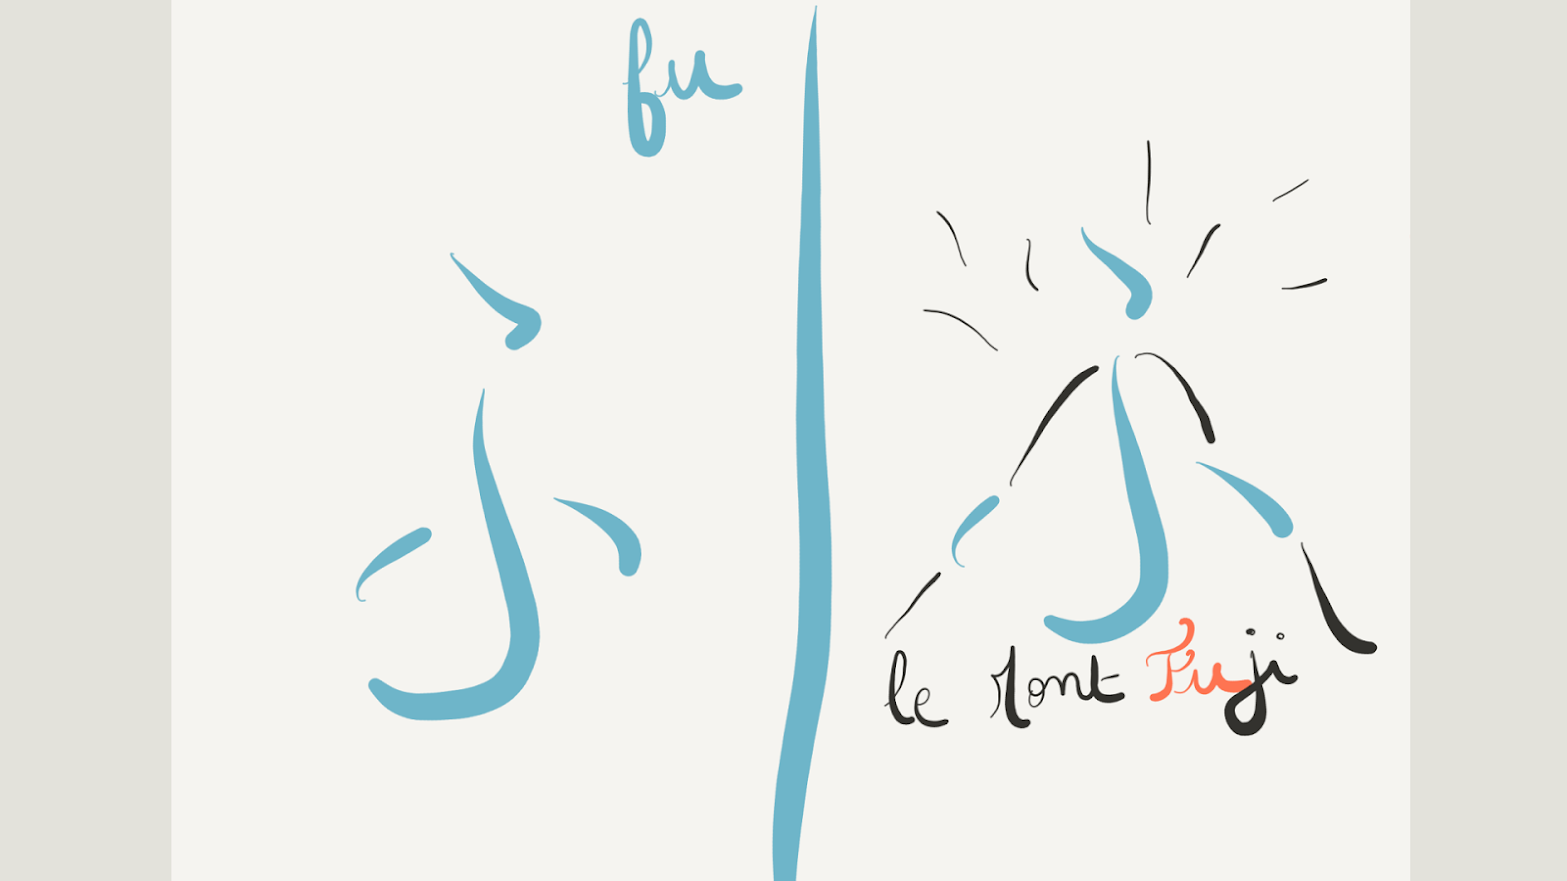 fu
ふ
ふ
le Mont Fuji